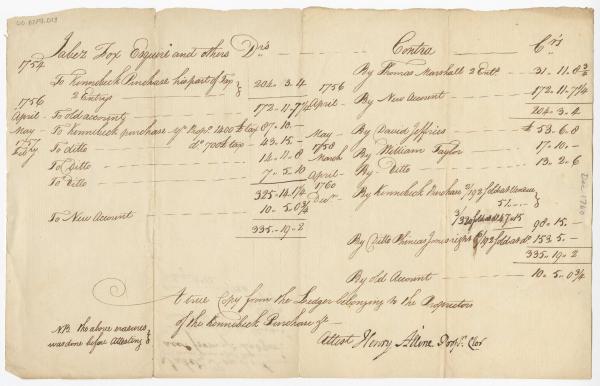 Jabez Fox Esquire and others Drs
1754
To Kennebeck Purchase his part of Tax 2 Entrys 204..3..4
172..11..7¼
1756
April To old account
May To Kennebeck purchase yr Propn 1400 £ tax 87..10..
1757
To ditto do 700 £ tax 43..15..
To Ditto 14..11..8
To Ditto 7..5..10
325..14..1¼
To New Account 10..5..0¾
335..19..2
Contra Crs
By Thomas Marshall 2 Ents 31..11..8¾
1756
April By New Account 172..11..7¼
204..3..4
May By David Jeffries £53..6..8
1758
March By William Taylor 17..10..
April By Ditto 13..2..6
1760
Decr By Kennebeck Purchase 2/192 sold at Vendue
51..
47..15
98..15..
By Ditto Phineas Jones right 6/192 sold at do 153..5..
335..19..2
By old Account 10..5..0¾
A true Copy from the Ledger belonging to the Proprietors
of the Kennebeck Purchase &c
Attest Henry Alline Propts Cler
NB. the above erasures
was done before Attesting
Dec 1760